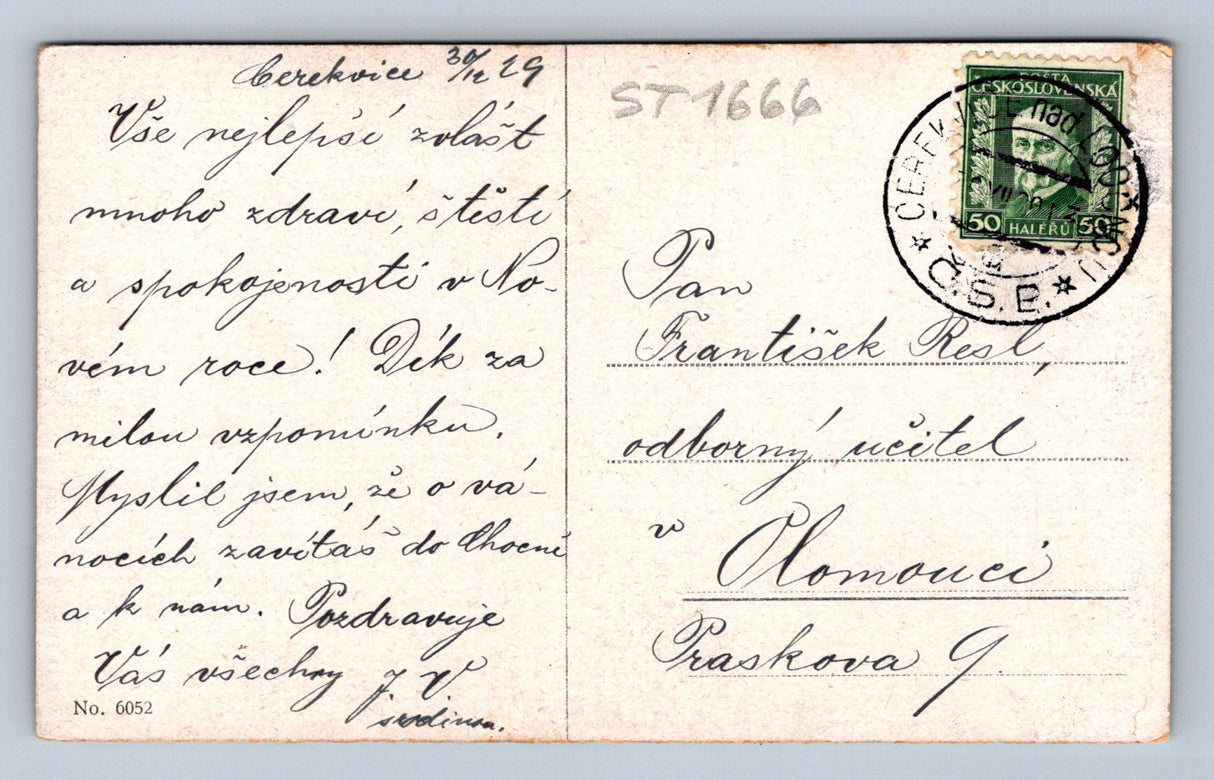 Cerekvice 30/12 29
Vše nejlepší zvlášt
mnoho zdraví, štěstí
a spokojenosti v No-
vém roce! Dík za
milou vzpomínku.
Myslil jsem, že o vá-
nocích zavítáš do Chocně
a k nám. Pozdravuje
Vás všechny J V
s rodinou.
No. 6052
ST 1666
POSTA
ČESKOSLOVENSKÁ
50 HALÉŘŮ 50
CEREKVICE nad LOUČNOU
Č.S.P.
Pan
František Resl,
odborný učitel
v Olomouci
Praskova 9.